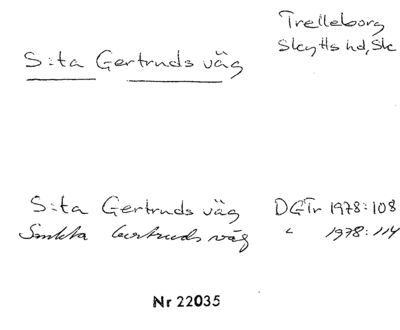 Trelleborg
Skytts hd, Sk
S:ta Gertruds väg
S:ta Gertruds väg DGTr 1978:108
Sankta Gertruds väg " 1978:114
Nr 22035